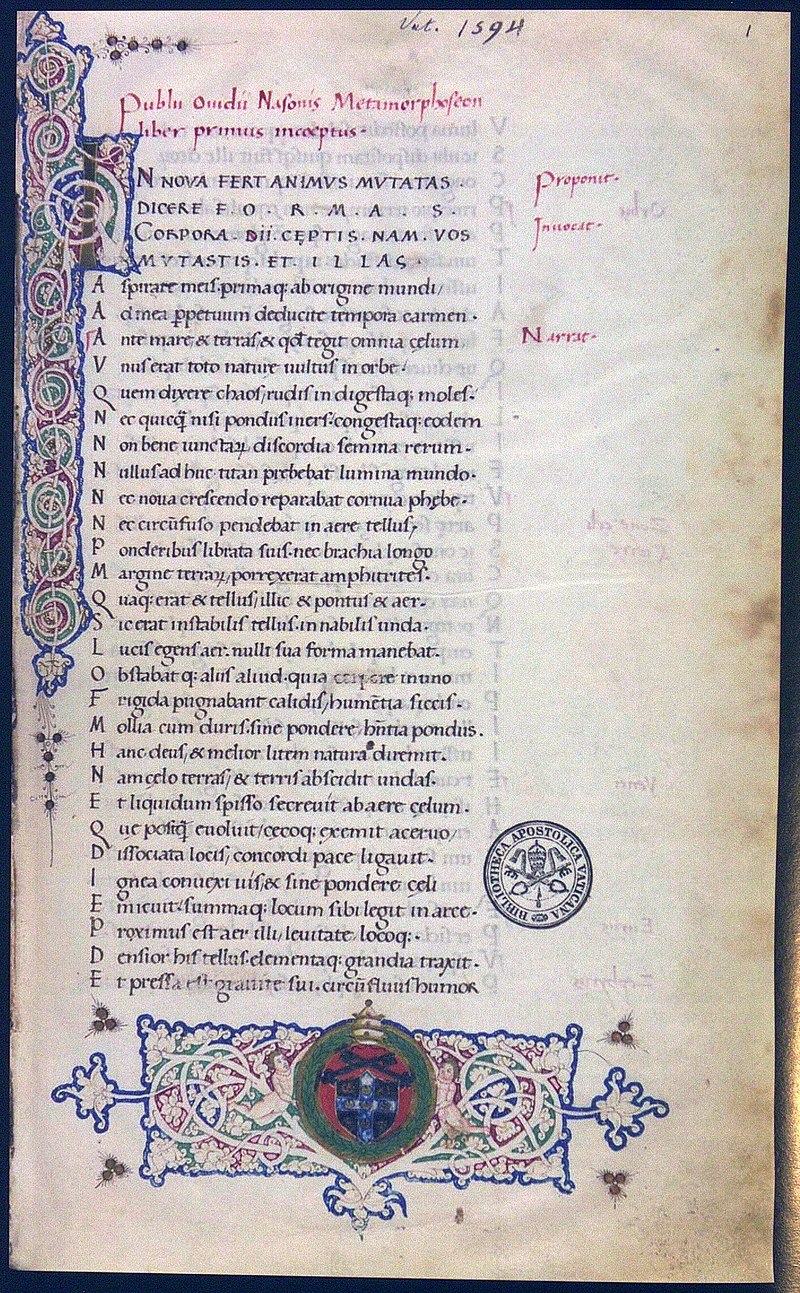 Vat. 1594
1
Publii Ovidii Nasonis Metamorphoseon
liber primus incoeptus·
IN NOVA FERT ANIMVS MVTATAS
Proponit·
DICERE F · O · R · M · A · S
Invocat·
CORPORA· DII CĘPTIS· NAM VOS
MVTASTIS ET ILLAS
Aspirate meis· primaq; ab origine mundi
Ad mea ꝑpetuum deducite tempora carmen·
Ante mare & terras & qđ tegit omnia cęlum
Narrat·
Vnus erat toto nature uultus in orbe·
Quem dixere chaos, rudis indigestaq; moles·
Nec quicq̄ nisi pondus iners· congestaq; eodem
Non bene iunctaꝝ discordia semina rerum·
Nullus ad huc titan prebebat lumina mundo·
Nec noua crescendo reparabat cornua phębe·
Nec circūfuso pendebat in aere tellus·
Ponderibus librata suis· nec brachia longo
Margine terraꝝ, porrexerat amphitrites·
Quaq; erat & tellus, illic & pontus & aer·
Sic erat instabilis tellus· innabilis unda·
Lucis egens aer· nulli sua forma manebat·
Obstabat q; aliis aliud· quia corpore in uno
Frigida pugnabant calidis, humētia siccis·
Mollia cum duris· sine pondere hn̄tia pondus·
Hanc deus, & melior litem natura diremit·
Nam cęlo terras, & terris abscidit undas·
Et liquidum spisso secreuit ab aere cęlum·
Que postq̄ euoluit, cęcoq; exemit aceruo,
Dissociata locis, concordi pace ligauit·
Ignea conuexi uis, & sine pondere cęli
Emicuit· summaq; locum sibi legit in arce·
Proximus est aer illi, leuitate locoq;·
Densior his tellus· elementaq; grandia traxit·
Et pressa est grauite sui· circūfluus humor
BIBLIOTHECA APOSTOLICA VATICANA